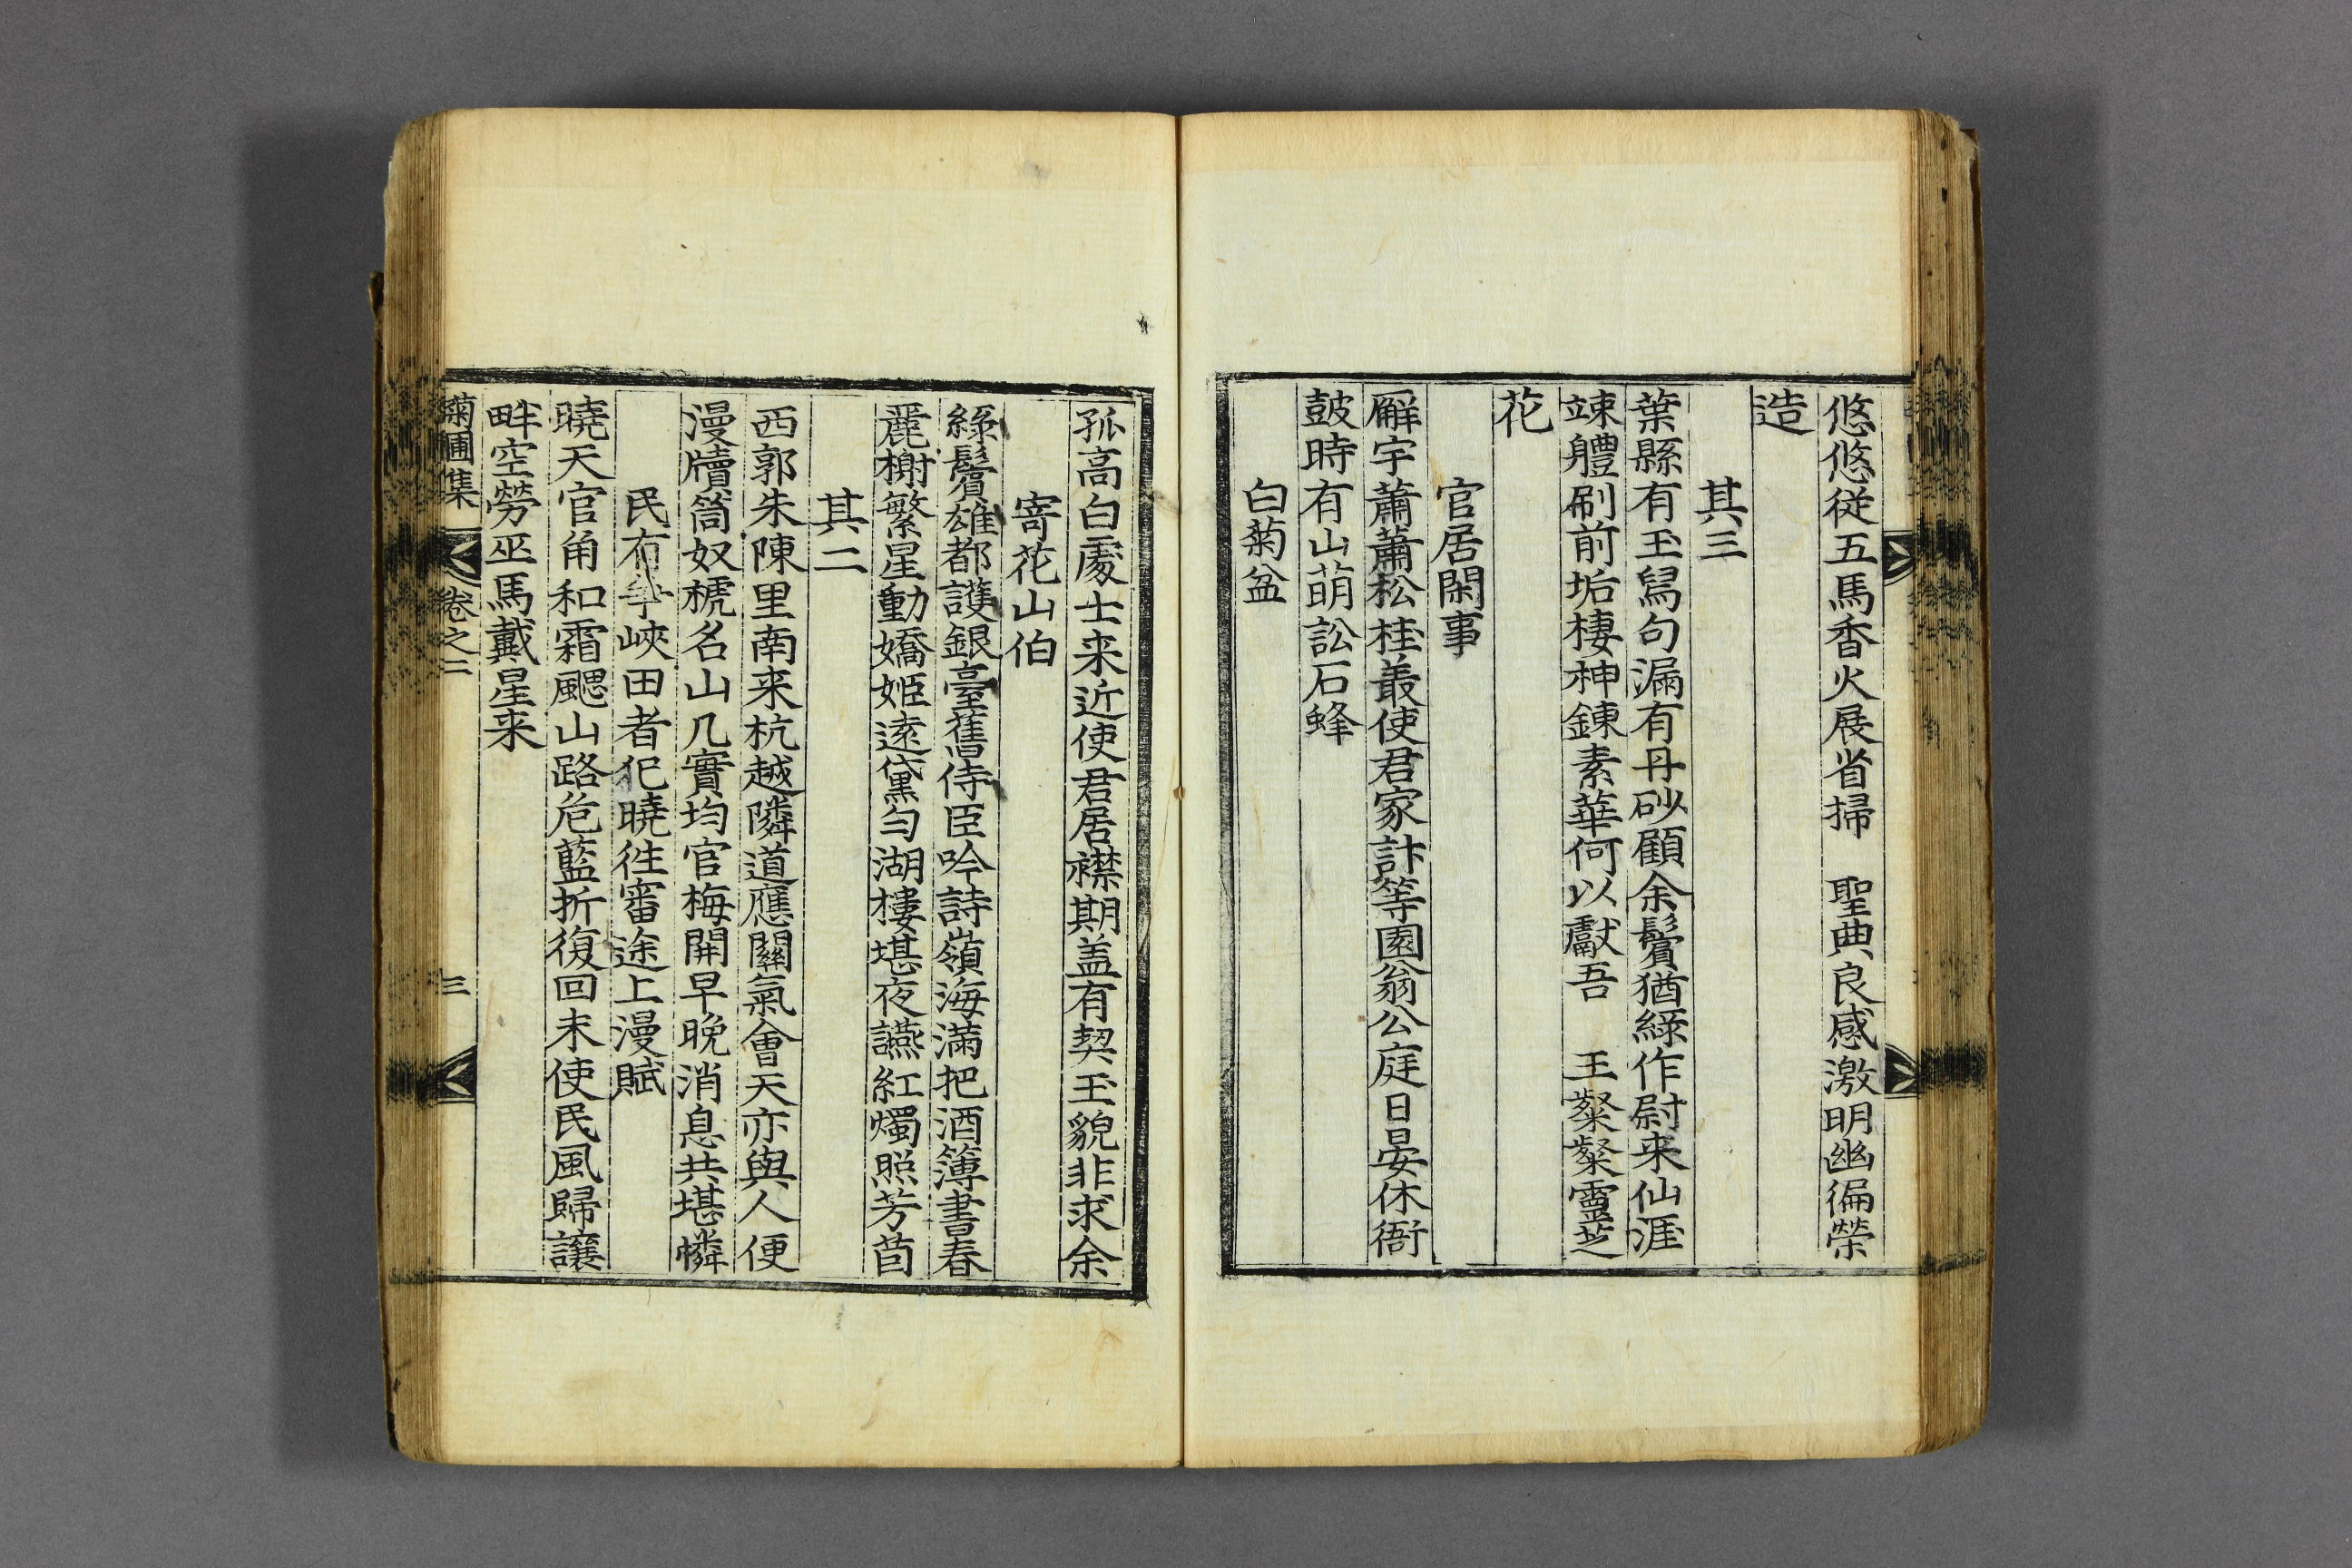 悠悠從五馬香火展省掃 聖典良感激明幽徧榮
造
其三
葉縣有玉舄句漏有丹砂顧余鬢猶綠作尉来仙涯
竦軆刷前垢棲神鍊素華何以獻吾 王粲粲靈芝
花
官居閑事
廨宇蕭蕭松桂叢使君家計等園翁公庭日晏休衙
皷時有山萌訟石蜂
白菊盆
孤高白處士来近使君居襟期盖有契玉貌非求余
寄花山伯
綠鬢雄都護銀臺舊侍臣吟詩嶺海滿把酒簿書春
麗榭繁星動嬌姬遠黛勻湖樓堪夜讌紅燭照芳茵
其二
西郭朱陳里南来杭越隣道應關氣會天亦與人便
漫牘筒奴櫬名山几實均官梅開早晚消息共堪憐
民有爭峽田者犯曉徃審途上漫賦
曉天官角和霜颸山路危藍折復回未使民風歸讓
畔空勞巫馬戴星来
菊圃集 卷之二 三